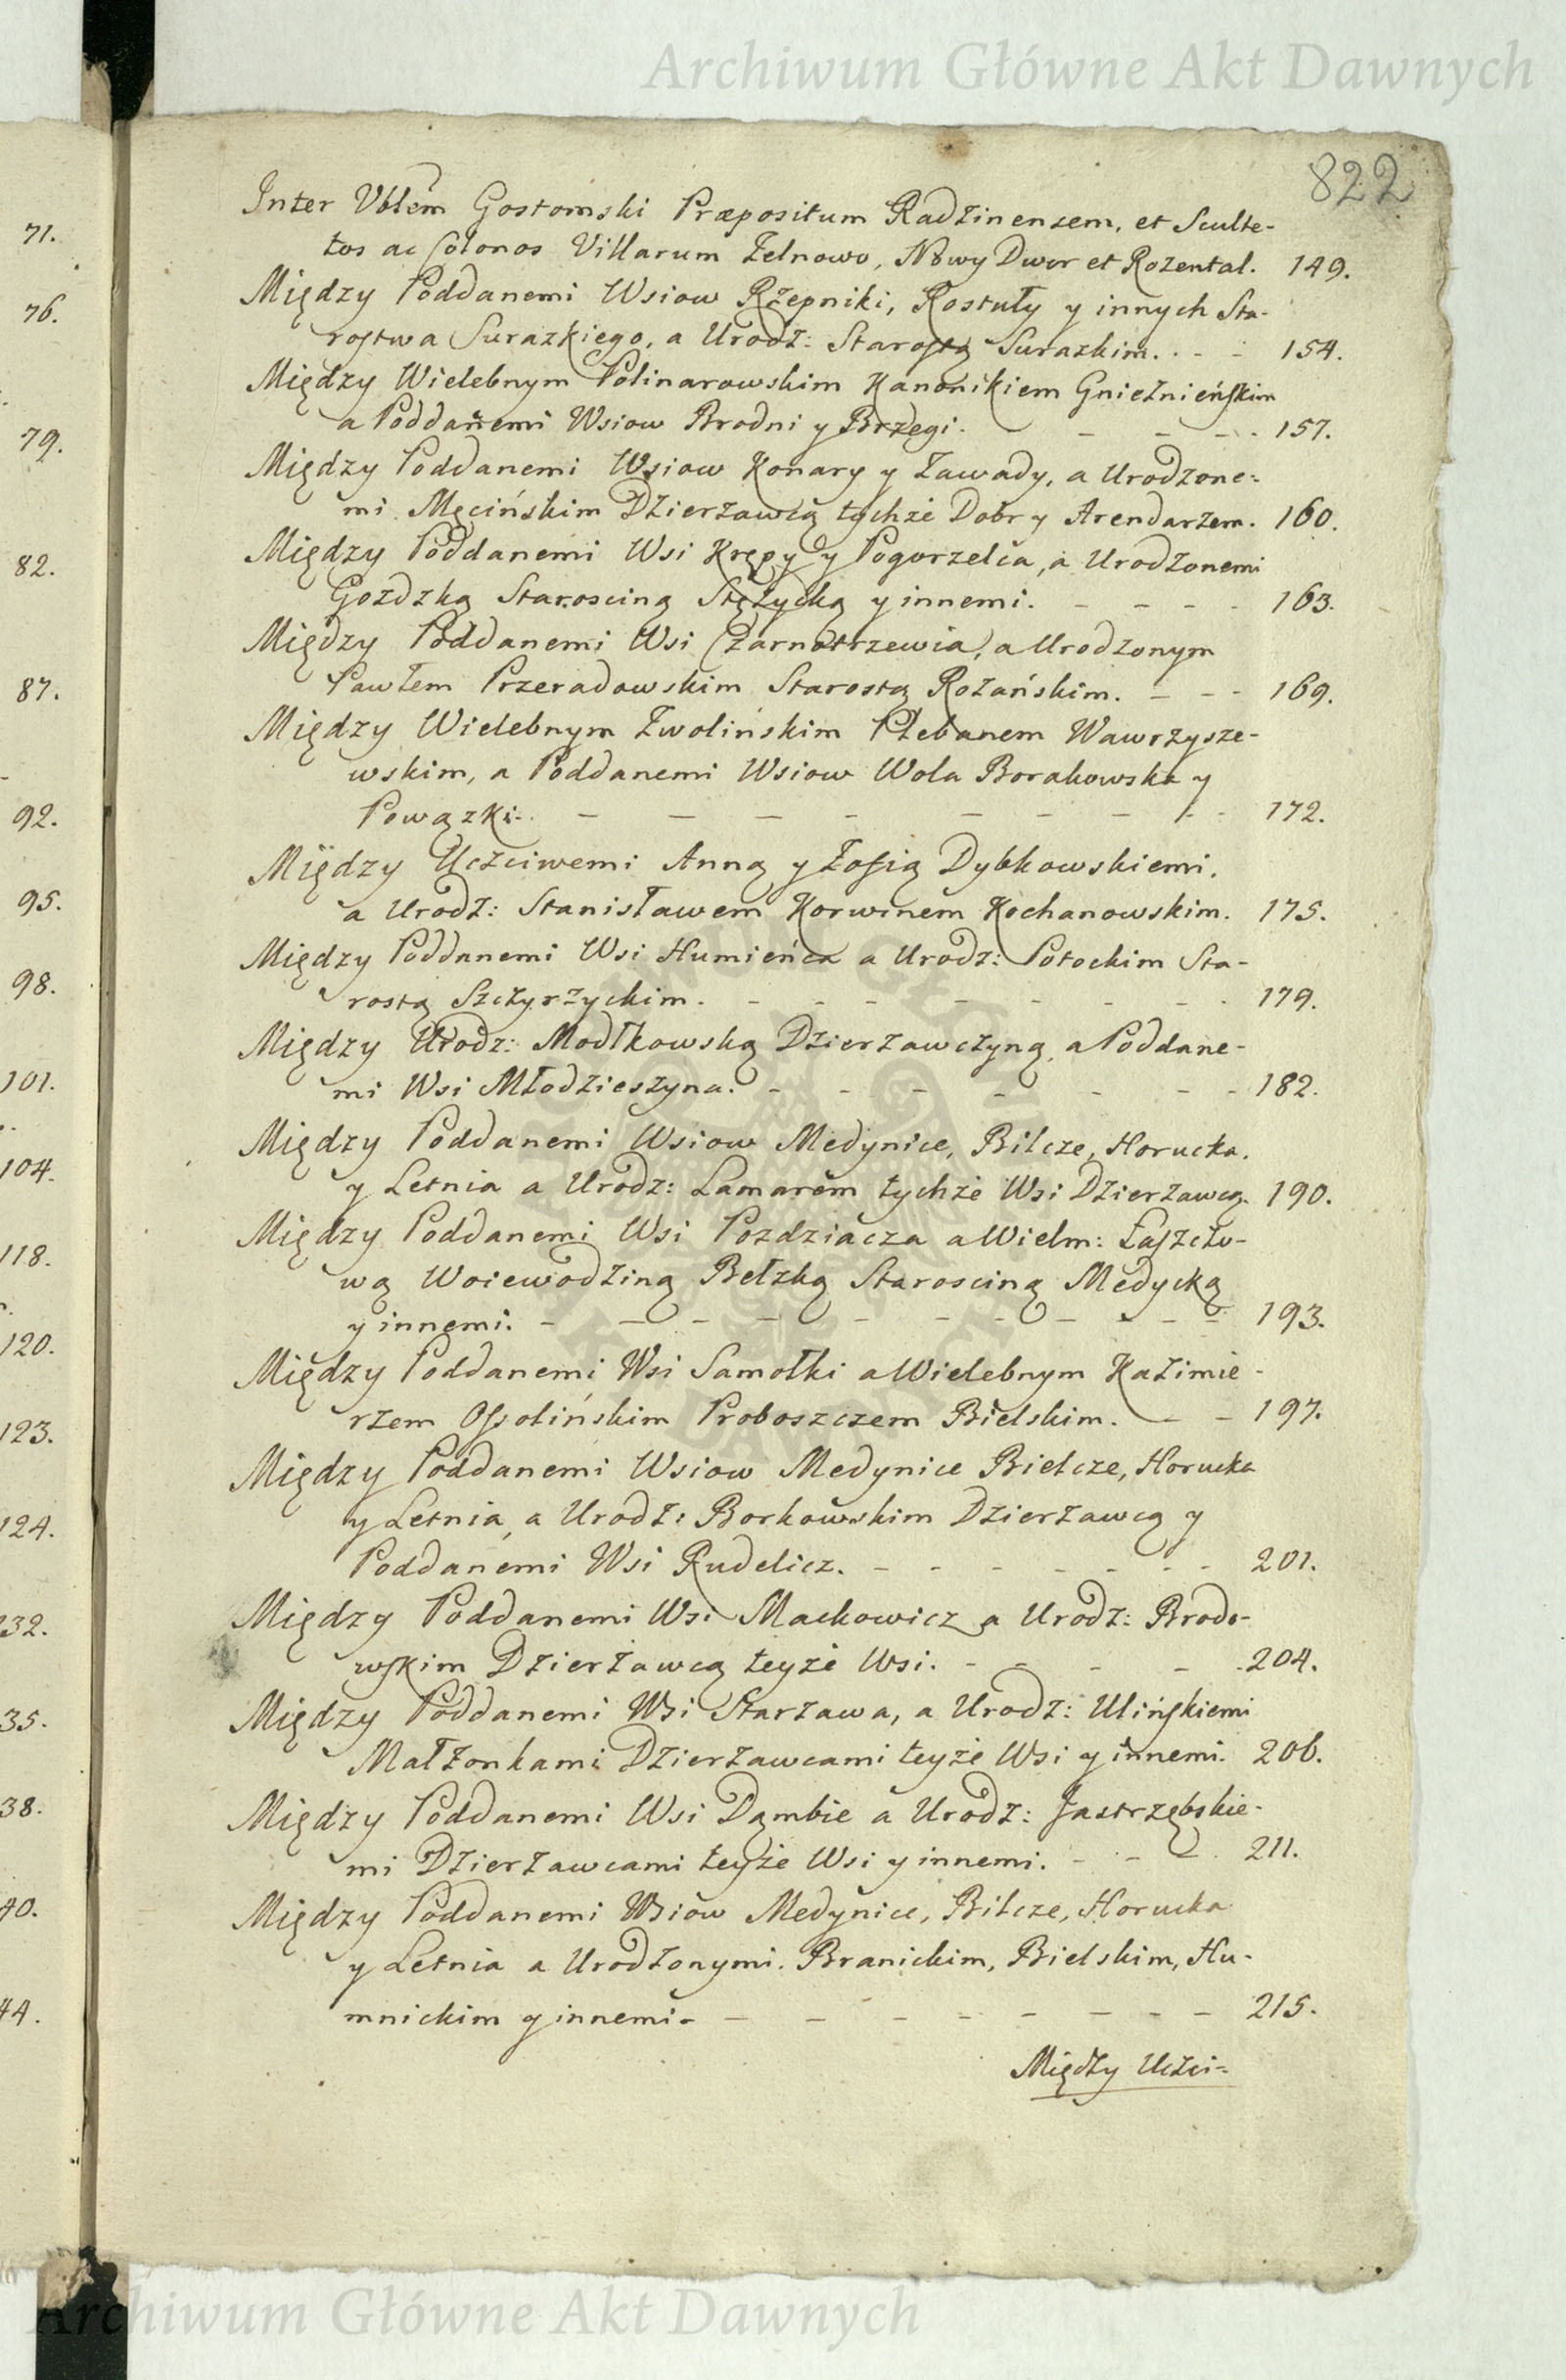 Archiwum Główne Akt Dawnych
822
71.
76.
79.
82.
87.
92.
95.
98.
101.
104.
118.
120.
123.
124.
132.
35.
38.
40.
44.
Inter Vblem Gostomski Præpositum Radzinensem, et Sculte-
tos ac Colonos Villarum Zelnowo, Nowy Dwor et Rozental. 149.
Między Poddanemi Wsiow Rzepniki, Rostuły y innych Sta-
rostwa Surazkiego, a Urodz: Starostą Surazkim. - - 154.
Między Wielebnym Polinarowskim Kanonikiem Gnieźnieńskim
a Poddanemi Wsiow Brodni y Brzegi. - - - - 157.
Między Poddanemi Wsiow Konary y Zawady, a Urodzone-
mi Męcińskim Dzierzawcą tychże Dobr y Arendarzem. 160.
Między Poddanemi Wsi Krępy y Pogorzelca, a Urodzonemi
Gozdzką Staroscing Stęzycką y innemi. - - - - 163.
Między Poddanemi Wsi Czarnotrzewia, a Urodzonym
Pawłem Przeradowskim Starostą Rozańskim. - - - 169.
Między Wielebnym Zwolińskim Plebanem Wawrzysze-
wskim, a Poddanemi Wsiow Wola Borakowska y
Powązki. - - - - - - - - - 172.
Między Uczciwemi Anną y Zofią Dybkowskiemi,
a Urodz: Stanisławem Korwinem Kochanowskim. 175.
Między Poddanemi Wsi Humieńca a Urodz: Potockim Sta-
rostą Szczyrzyckim. - - - - - - - 179.
Między Urodz: Modłkowską Dzierzawczyną, a Poddane-
mi Wsi Młodzieszyna. - - - - - - - 182.
Między Poddanemi Wsiow Medynice, Bilcze, Horucka,
y Letnia a Urodz: Lamarem tychże Wsi Dzierzawcą. 190.
Między Poddanemi Wsi Pozdziacza a Wielm: Łaszczo-
wą Woiewodziną Bełzką Staroscing Medycką
y innemi. - - - - - - - - - - 193.
Między Poddanemi Wsi Samołki a Wielebnym Kazimie-
rzem Ossolińskim Proboszczem Bielskim. - - 197.
Między Poddanemi Wsiow Medynice Bielcze, Horucka
y Letnia, a Urodz: Borkowskim Dzierzawcą y
Poddanemi Wsi Rudelicz. - - - - - - 201.
Między Poddanemi Wsi Mackowicz a Urodz: Brodo-
wskim Dzierżawcą teyże Wsi. - - - - 204.
Między Poddanemi Wsi Starzawa, a Urodz: Ulińskiemi
Małzonkami Dzierzawcami teyże Wsi y innemi. 206.
Między Poddanemi Wsi Dąmbie a Urodz: Jastrzębskie-
mi Dzierzawcami teyże Wsi y innemi. - - - 211.
Między Poddanemi Wsiow Medynice, Bilcze, Horucka
y Letnia a Urodzonymi. Branickim, Bielskim, Hu-
mnickim y innemi. - - - - - - - - 215.
Między Uczci-
Archiwum Główne Akt Dawnych